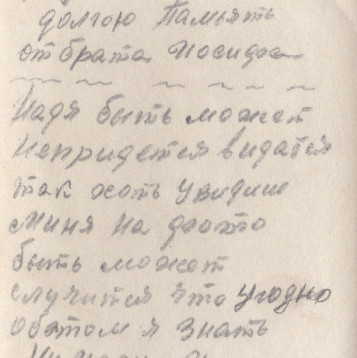 долгою Память
от брата Иосифа
Надя быть может
непридется видатся
так хоть увидиш
миня на фото
быть может
случится что угодно
обетом я знать